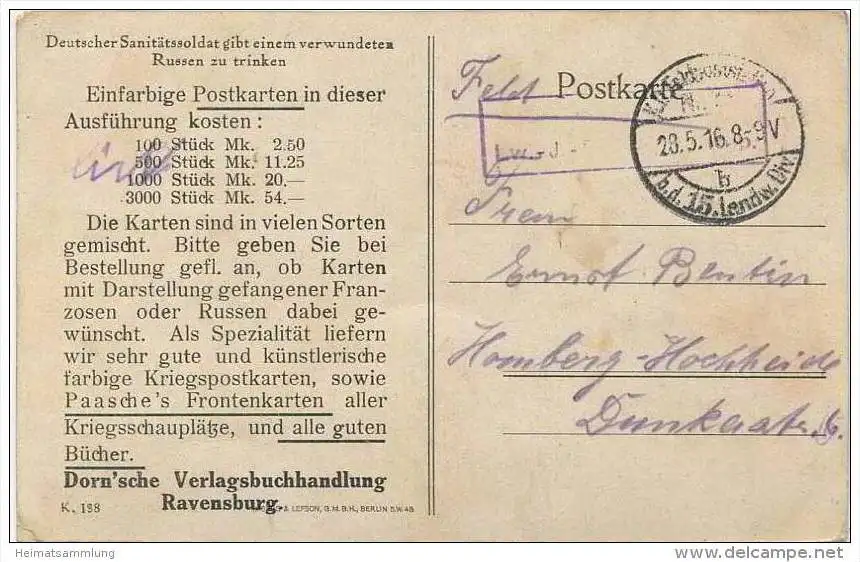 Deutscher Sanitätssoldat gibt einem verwundeten
Russen zu trinken
Einfarbige Postkarten in dieser
Ausführung kosten:
100 Stück Mk. 2.50
500 Stück Mk. 11.25
1000 Stück Mk. 20.—
3000 Stück Mk. 54.—
Die Karten sind in vielen Sorten
gemischt. Bitte geben Sie bei
Bestellung gefl. an, ob Karten
mit Darstellung gefangener Fran-
zosen oder Russen dabei ge-
wünscht. Als Spezialität liefern
wir sehr gute und künstlerische
farbige Kriegspostkarten, sowie
Paasche's Frontenkarten aller
Kriegsschauplätze, und alle guten
Bücher.
Dorn'sche Verlagsbuchhandlung
Ravensburg.
K. 198
& LEFSON, G.M.B.H., BERLIN S.W. 48
Feld Postkarte
28.5.16. 8-9V
b
b.d. 15. Landw. Div.
Frau
Ernst Bentin
Homberg-Hochheide
Heimatsammlung
delcampe.net